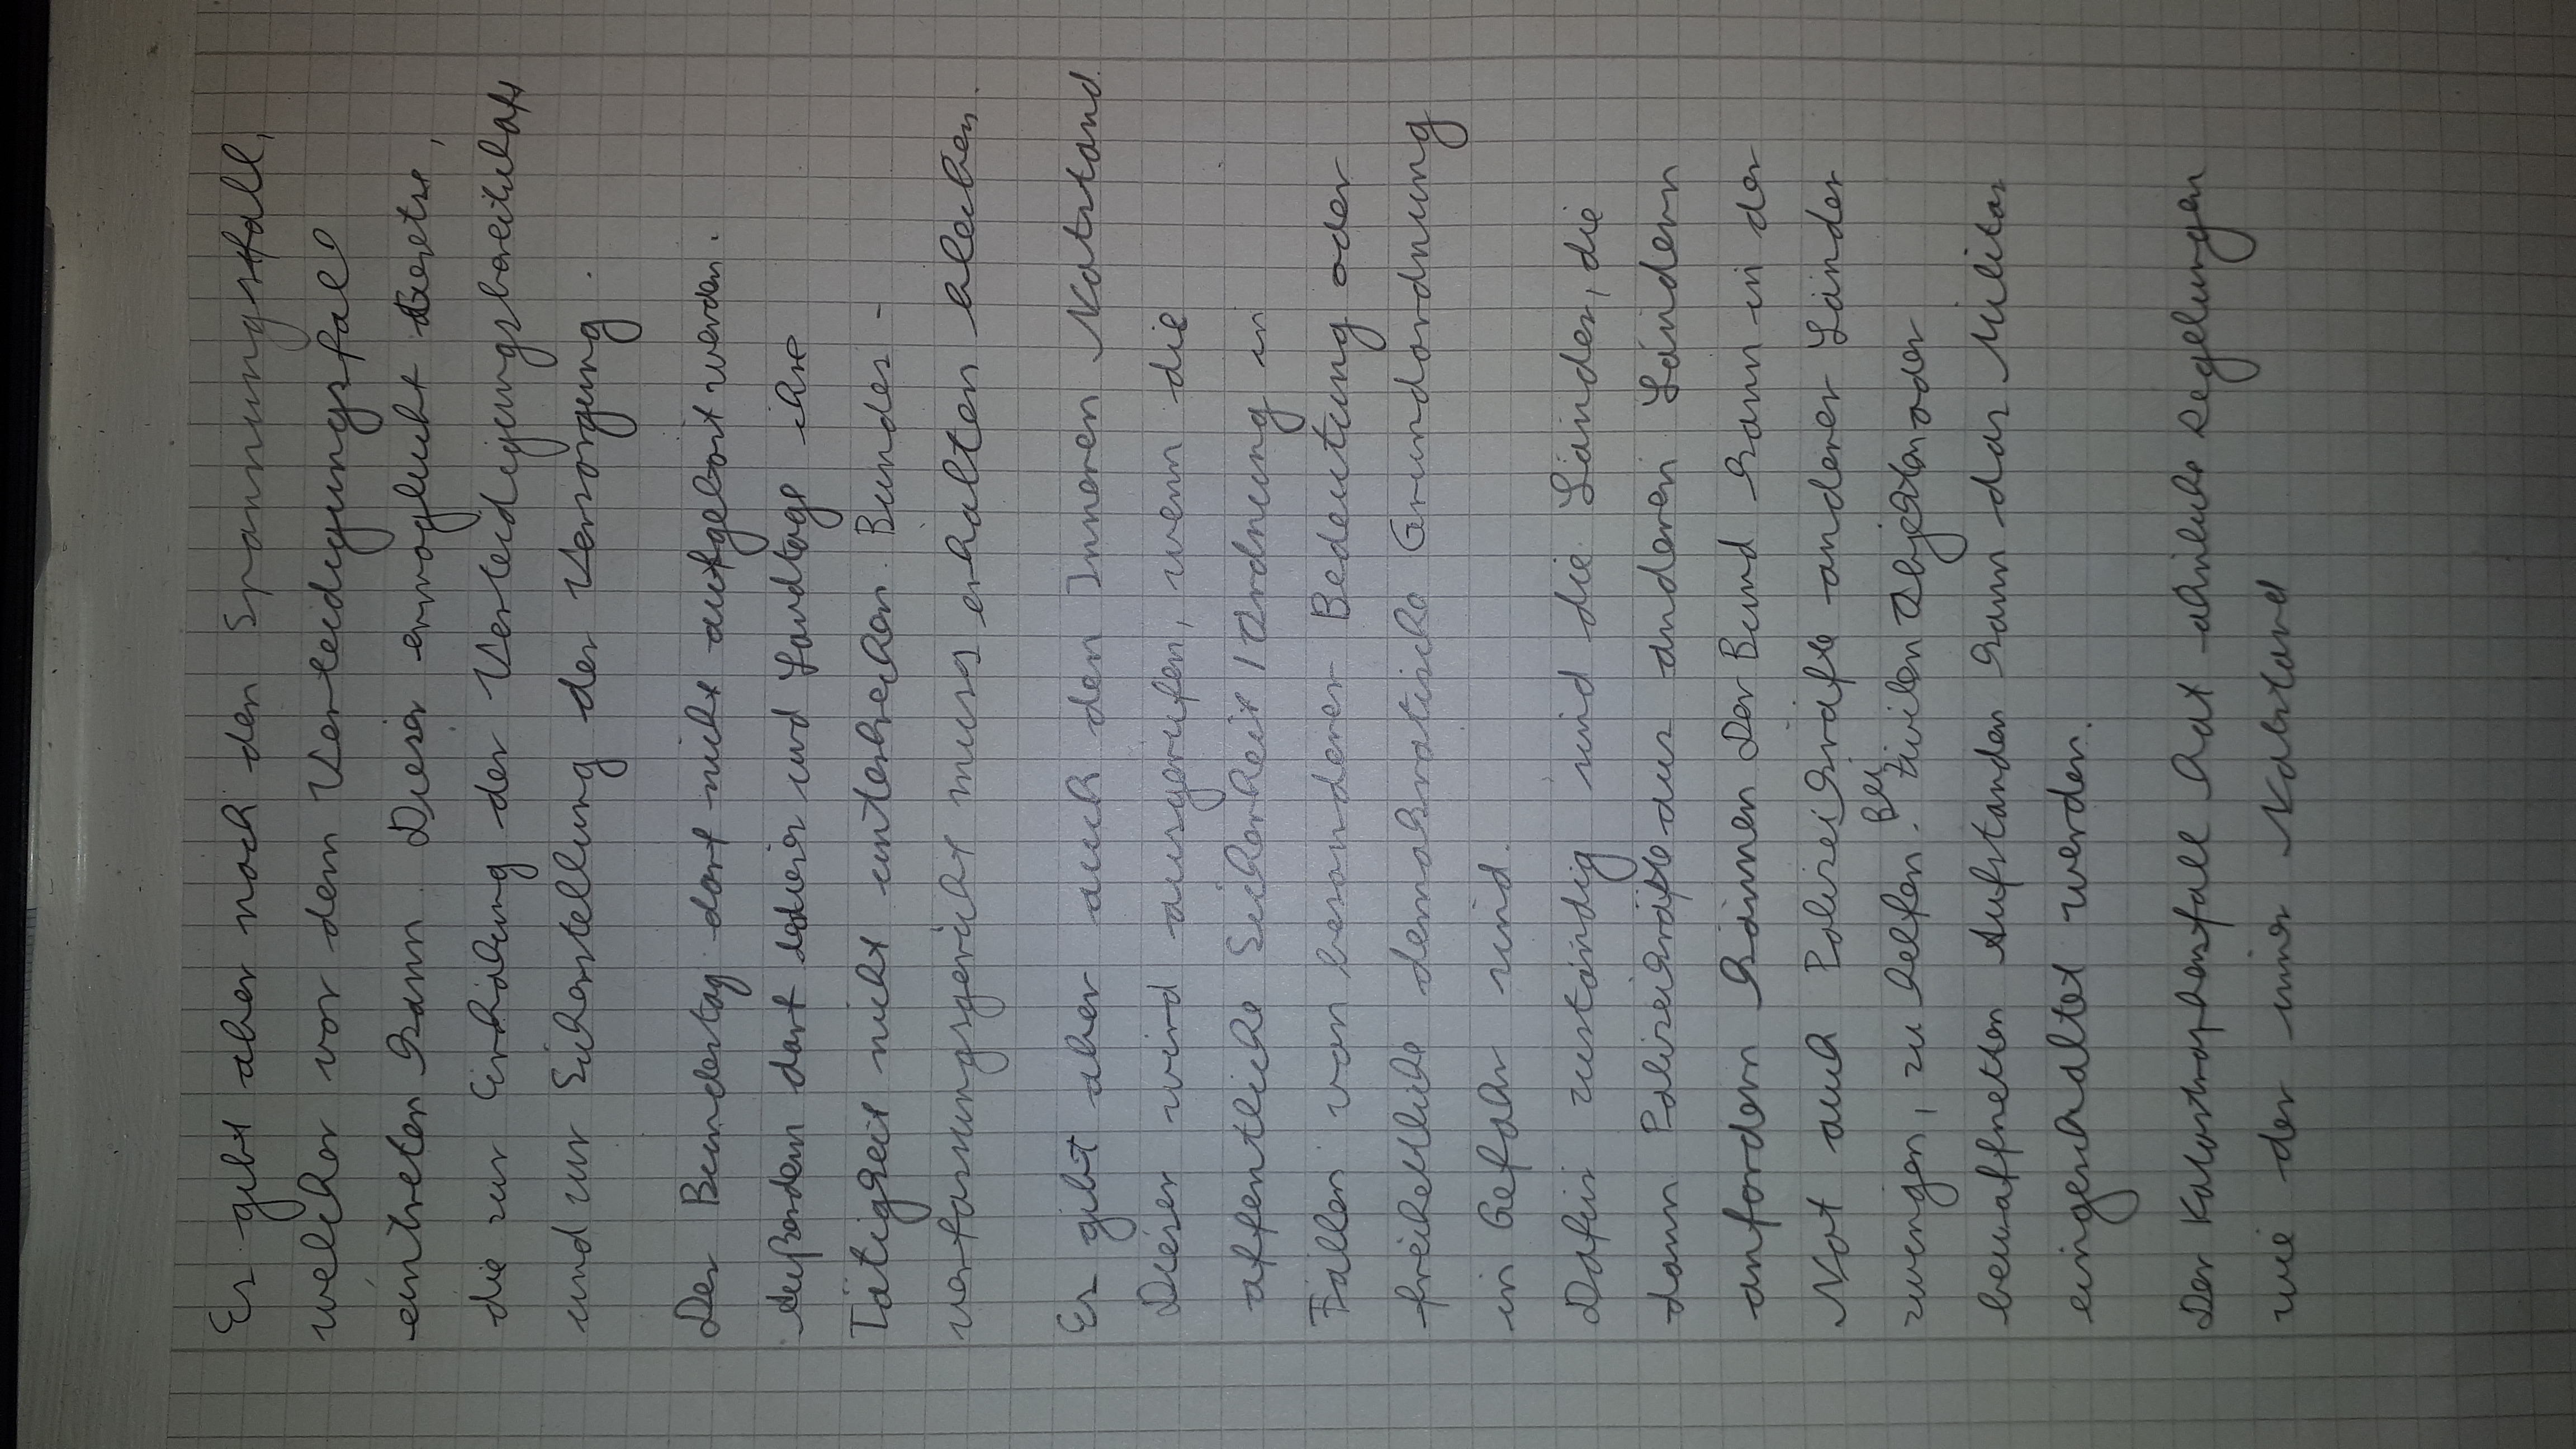 Es gibt aber noch den Spannungsfall,
welcher vor dem Verteidigungsfall
eintreten kann. Dieser ermöglicht Gesetze,
die zur Erhöhung der Verteidigungsbereitschaft
und zur Sicherstellung der Versorgung.
Der Bundestag darf nicht aufgelöst werden.
Außerdem darf dieser und Landtage ihre
Tätigkeit nicht unterbrechen. Bundes-
verfassungsgericht muss erhalten bleiben.
Es gibt aber auch den Inneren Notstand.
Dieser wird ausgerufen, wenn die
öffentliche Sicherheit / Ordnung in
Fällen von besonderer Bedeutung oder
freiheitliche demokratische Grundordnung
in Gefahr sind.
Dafür zuständig sind die Länder, die
dann Polizeikräfte aus anderen Ländern
anfordern können Der Bund kann in der
Not auch Polizeikräfte anderer Länder
zwingen, zu helfen. Bei zivilen Objekten oder
bewaffneten Aufständen kann das Militär
eingeschaltet werden.
Der Katastrophenfall hat ähnliche Regelungen
wie der inner Notstand